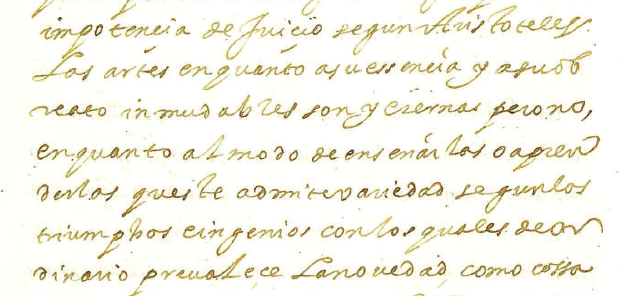 impotencia de Juicio segun Aristoteles.
Las artes enquanto asuessencia y asuob
reato inmudables son y eternas perono,
enquanto al modo de ensenarlas oapren
derlas queste admitevariedad segunlos
triumphos eingenios conlos quales deor
dinario prevalece Lanovedad, como cossa